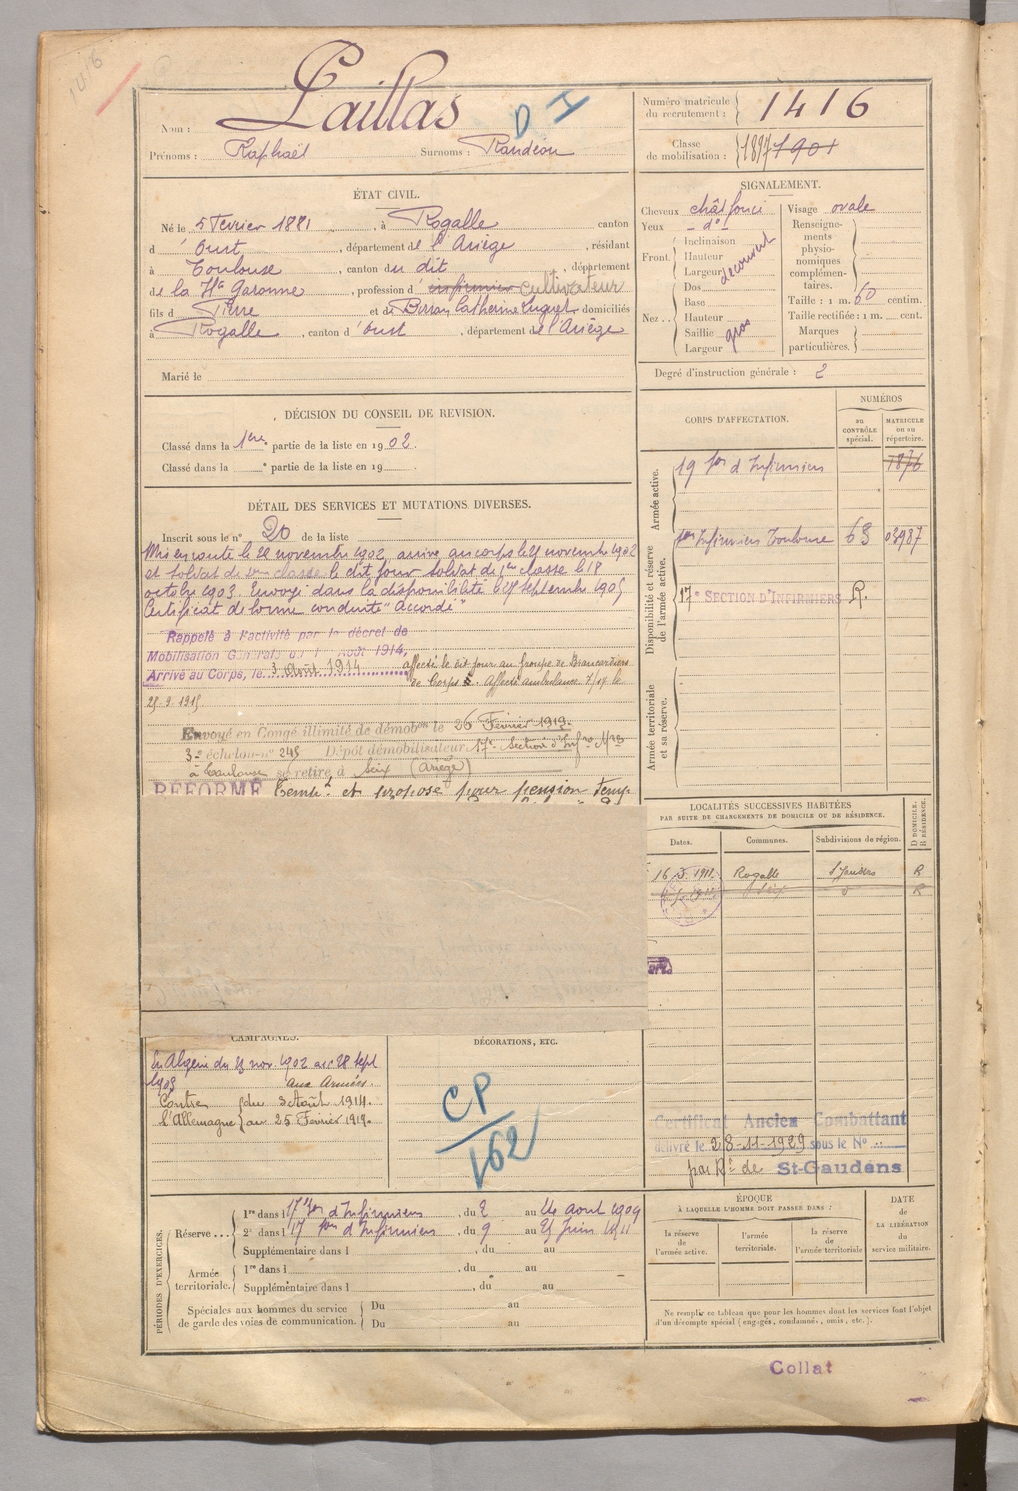 1416
Nom : Paillas
D
Prénoms : Raphaël Surnoms : Randéou
Numéro matricule du recrutement : 1416
Classe de mobilisation : 1897 1901
ÉTAT CIVIL.
Né le 5 Février 1881, à Rogalle canton
d'Oust, département de l'Ariège, résidant
à Toulouse, canton du dit, département
de la Hte Garonne, profession d'infirmier Cultivateur
fils d Pierre et de Buran Catherine domiciliés
à Rogalle, canton d'Oust, département de l'Ariège
Marié le
SIGNALEMENT.
Cheveux chât foncé
Yeux - do -
Front. Inclinaison
Hauteur
Largeur découvert
Nez.. Dos
Base
Hauteur
Saillie gros
Largeur
Visage ovale
Renseignements physionomiques complémentaires.
Taille : 1 m. 60 centim.
Taille rectifiée : 1 m. cent.
Marques particulières.
Degré d'instruction générale : 2
DÉCISION DU CONSEIL DE REVISION.
Classé dans la 1ere partie de la liste en 1902.
Classé dans la ° partie de la liste en 19 .
DÉTAIL DES SERVICES ET MUTATIONS DIVERSES.
Inscrit sous le n° 20 de la liste
Mis en route le 22 novembre 1902, arrivé au corps le 21 novembre 1902
et soldat de 2me classe le dit jour soldat de 1ere classe le 18
octobre 1903. Envoyé dans la disponibilité le septembre 1905
Certificat de bonne conduite "Accordé"
Rappelé à l'activité par le décret de
Mobilisation Générale du 1 Août 1914,
Arrivé au Corps, le 3 Août 1914 affecté le dit jour au Groupe de Brancardiers
de Corps. Affecté ambulance 7/17 le
25.9.1915
Envoyé en Congé illimité de démobon le 26 Février 1919.
3e échelon n° 245 Dépôt démobilisateur 17e Section d'Infres Mres
à Toulouse se retire à Seix (Ariège)
RÉFORMÉ Tempt et proposé pour pension Temp
CORPS D'AFFECTATION.
NUMÉROS
au CONTRÔLE spécial.
MATRICULE ou au répertoire.
Armée active.
19 Son d'Infirmiers 1876
Disponibilité et réserve de l'armée active.
Son Infirmiers Toulouse 63 03987
17e SECTION D'INFIRMIERS R.
Armée territoriale et sa réserve.
LOCALITÉS SUCCESSIVES HABITÉES
PAR SUITE DE CHANGEMENTS DE DOMICILE OU DE RÉSIDENCE.
Dates. Communes. Subdivisions de région. D DOMICILE. R RÉSIDENCE.
1911. Rogalle St Gaudens R
Seix d° R
CAMPAGNES.
En Algérie du 21 nov. 1902 au 28 sept
1903 aux Armées.
Contre l'Allemagne du 3 Août 1914
au 25 Février 1919.
DÉCORATIONS, ETC.
CP
162
Certificat Ancien Combattant
délivré le 28-11-1929 sous le N°
par R.t de St-Gaudens
PÉRIODES D'EXERCICES.
Réserve... 1re dans l 17 Son d'Infirmiers, du 2 au 24 aout 1909
2e dans l 17 Son d'Infirmiers, du 9 au 25 Juin 1911
Supplémentaire dans l , du au
Armée territoriale. 1re dans l , du au
Supplémentaire dans l , du au
Spéciales aux hommes du service de garde des voies de communication. Du au
Du au
ÉPOQUE
À LAQUELLE L'HOMME DOIT PASSER DANS :
la réserve de l'armée active.
l'armée territoriale.
la réserve de l'armée territoriale
DATE de LA LIBÉRATION du service militaire.
Ne remplir ce tableau que pour les hommes dont les services font l'objet
d'un décompte spécial (engagés, condamnés, omis, etc.).
Collat